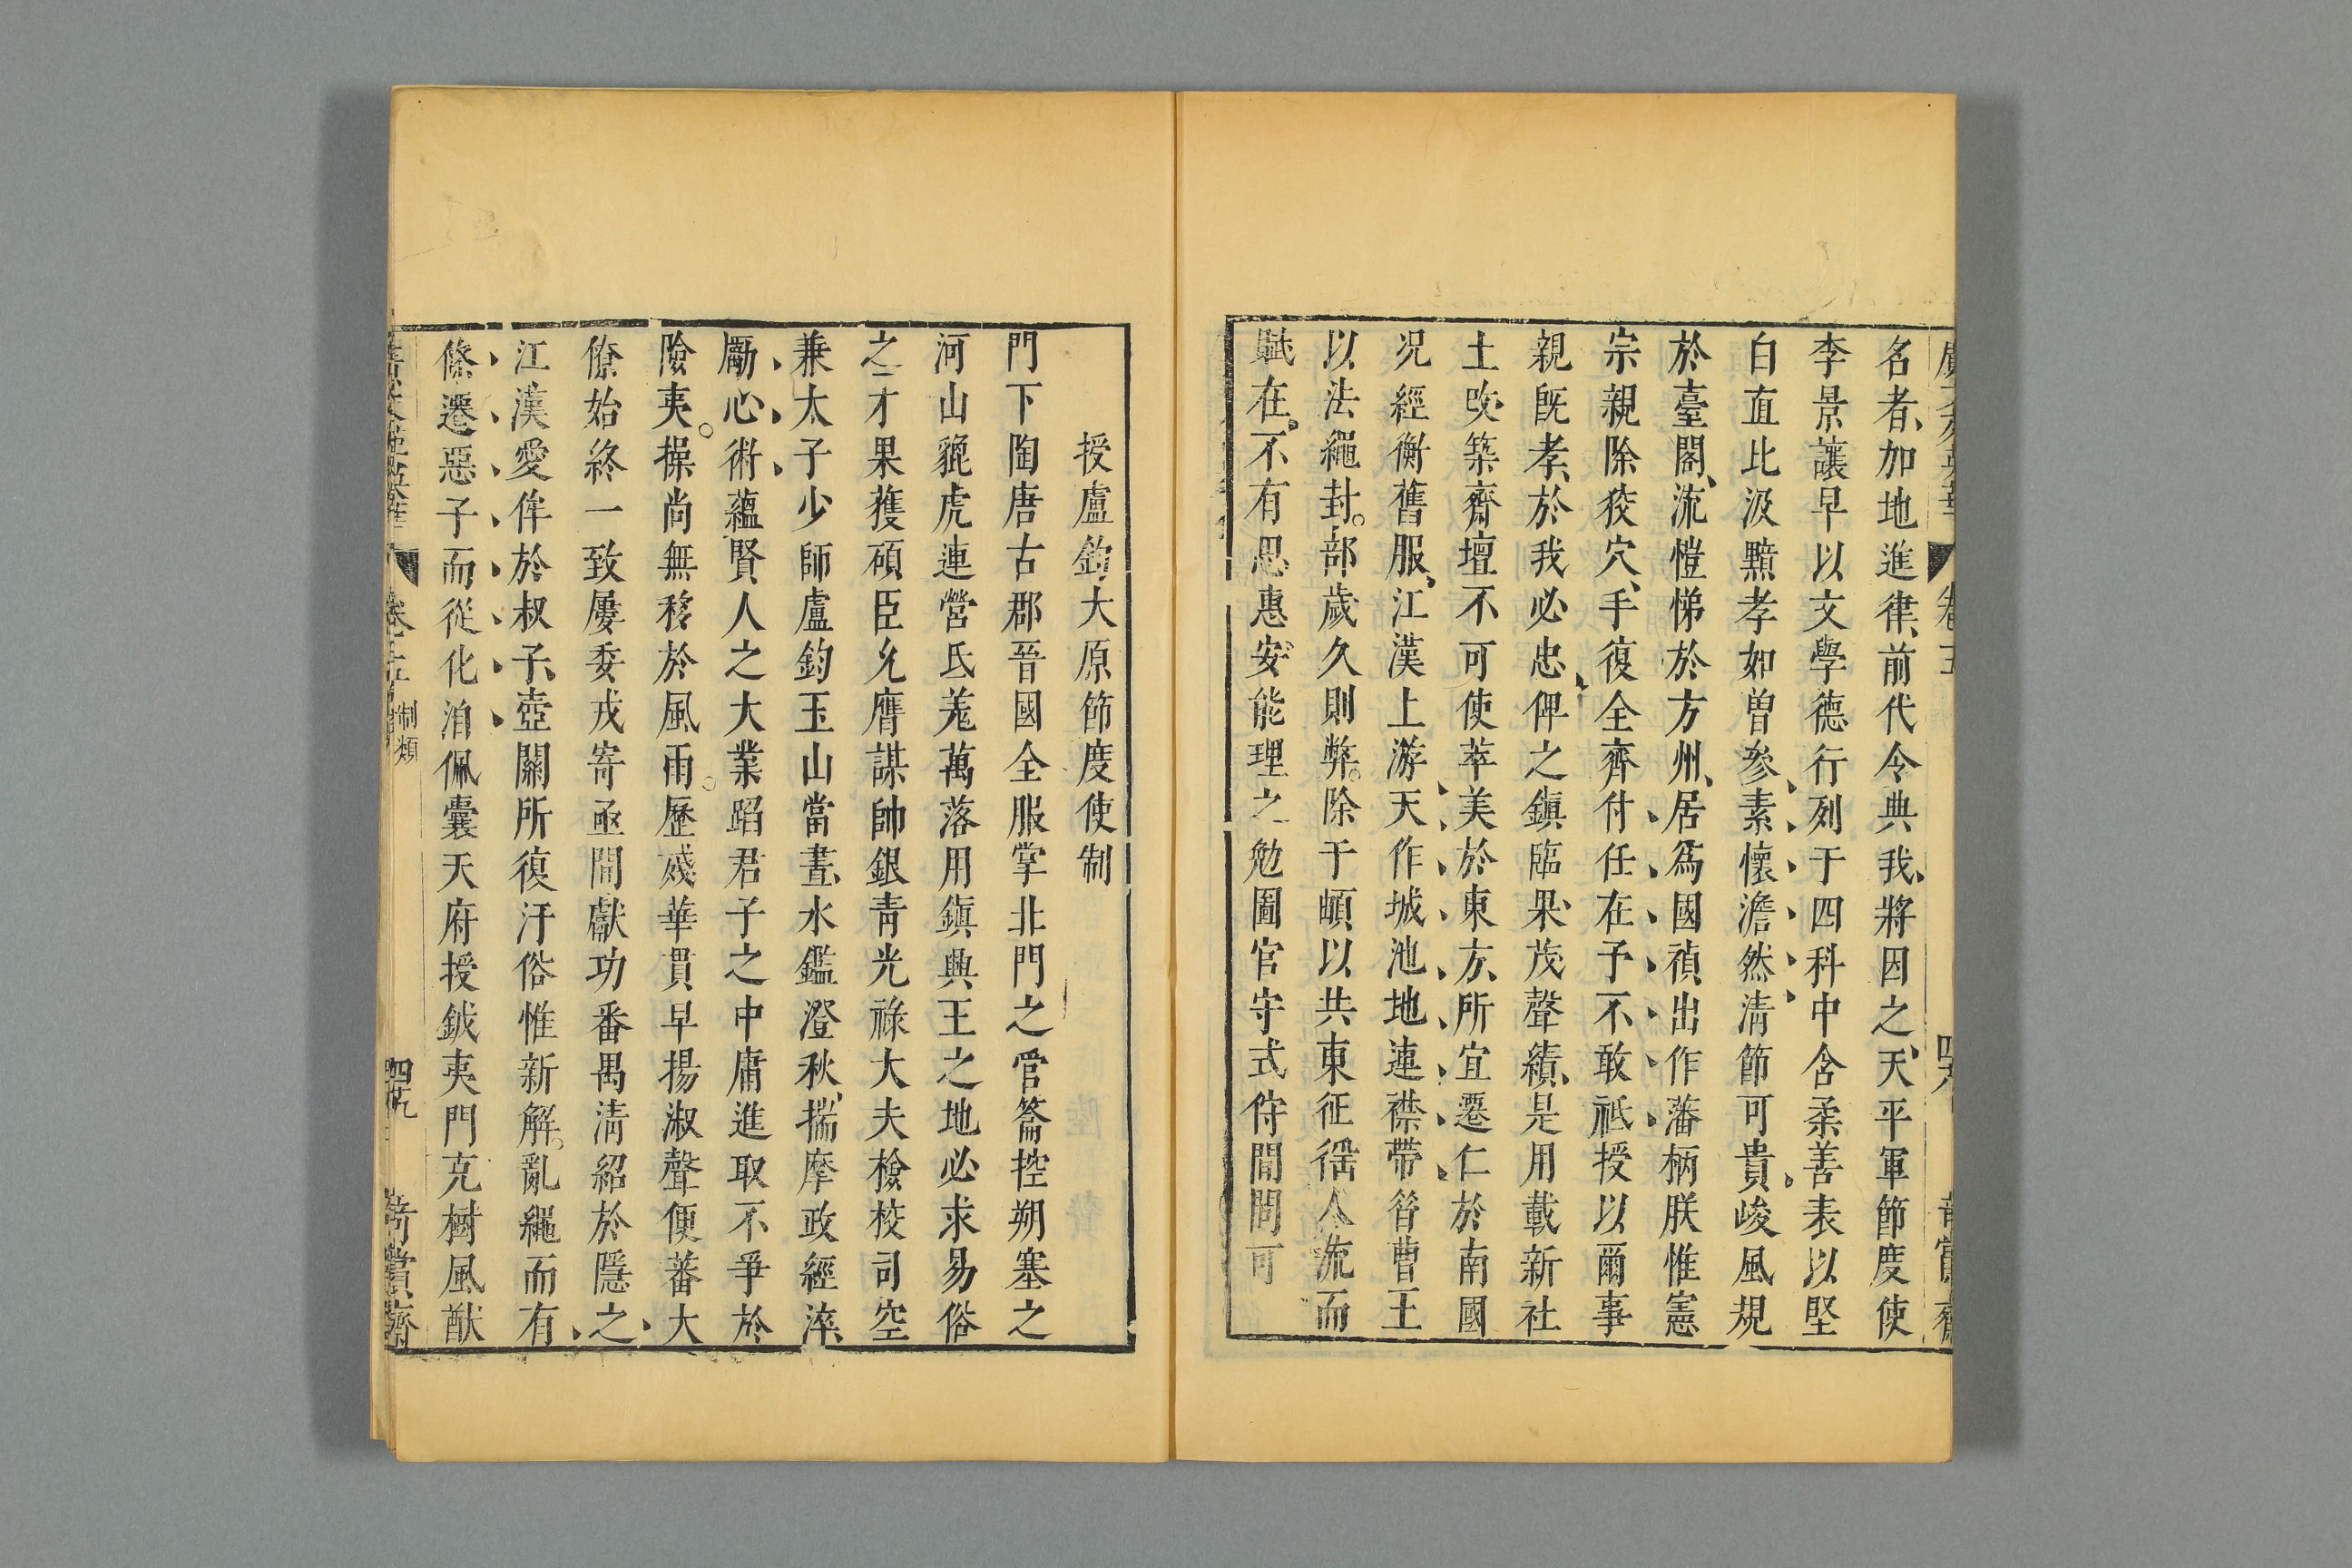 名者加地進律前代令典我將因之天平軍節度使
李景讓早以文學德行列于四科中含柔善表以堅
白直比汲黯孝如曾參素懷澹然清節可貴峻風規
於臺閣流愷悌於方州居爲國禎出作藩柄朕惟憲
宗親除狡穴手復全齊付任在予不敢祗授以爾事
親旣孝於我必忠俾之鎭臨果茂聲績是用載新社
土改築齋壇不可使萃美於東方所宜遷仁於南國
况經衡舊服江漢上游天作城池地連襟帶咎曹王
以法繩封部歲久則弊除于頔以共東征徭人流而
賦在不有思惠安能理之勉圖官守式侍聞問可
授盧鈞大原節度使制
門下陶唐古郡晉國全服掌北門之管籥控朔塞之
河山貔虎連營氐羗萬落用鎭興王之地必求易俗
之才果獲碩臣允膺謀帥銀青光祿大夫檢校司空
兼太子少師盧鈞玉山當晝水鑑澄秋揣摩政經淬
勵心術蘊賢人之大業蹈君子之中庸進取不爭於
險夷操尚無移於風雨歷踐華貫早揚淑聲便蕃大
僚始終一致屢委戎寄亟聞獻功番禺淸紹於隱之
江漢愛侔於叔子壺關所復汙俗惟新解亂繩而有
條遷惡子而從化洎佩囊天府授鉞夷門克樹風猷
制類
四九
奇賞齋